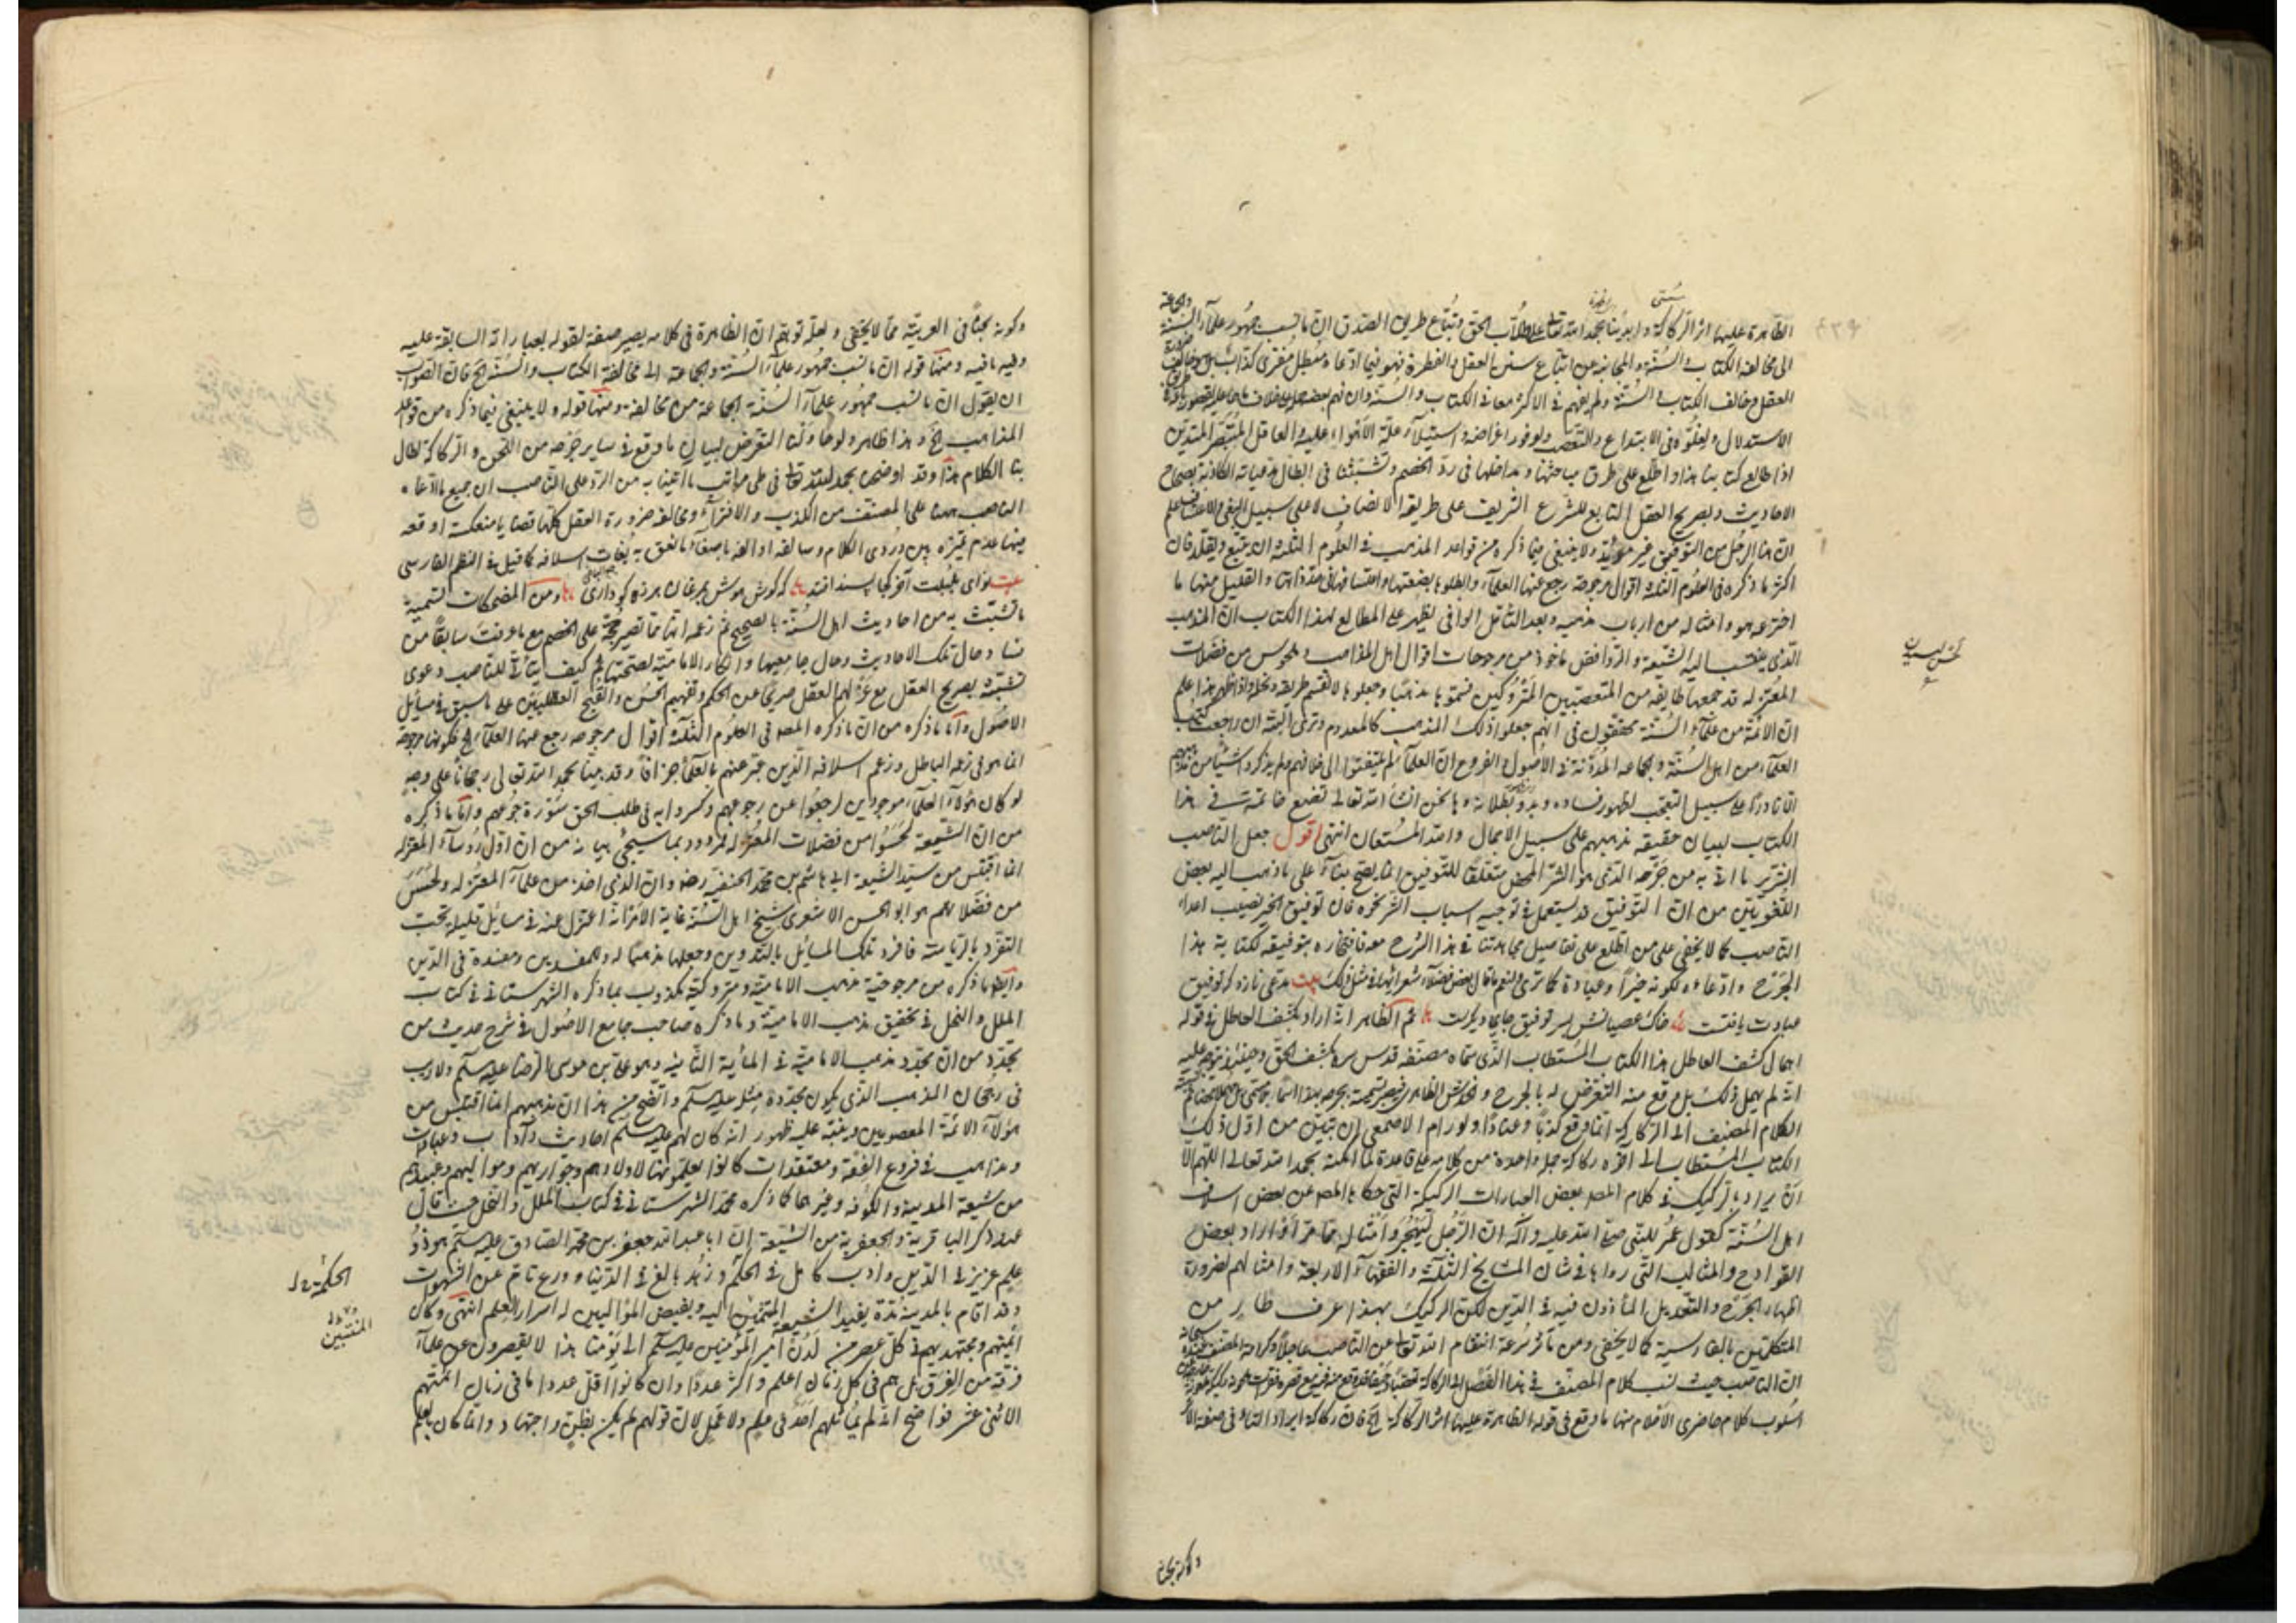 الظاهرة عليها اثر الركاكة
الى مخالفة الكتاب والسنة والمجانبة عن اتباع سنن العقل والفطرة فهو فيما ادعاه مبطل مفترى كذاب
العقل وخالف الكتاب والسنة ولم يفهم في الاكثر معاني الكتاب والسنة وان فهم
الاستدلال ولغلوه في الابتداع والتعصب ولوفور اغراضه واستيلاء علة الاهواء عليه والعاقل
اذا طالع كتابنا هذا واطلع على طرق مباحثنا ومداخلها في رد الخصم وتشبثنا في ابطال مدعياته الكاذبة بصحاح
الاحاديث وبصريح العقل التابع للشرع الشريف على طريقة الانصاف لا على سبيل البغى والاعتساف علم
ان هذا الرجل من التوفيق غير مؤيد ولا ينبغي فيما ذكره من قواعد المذهب في العلوم الثلثة ان يتبع ويقلد فان
اكثر ما ذكره في العلوم الثلثة اقوال مرجوحة رجع عنها العلماء وابطلوها والقليل منها ما
اخترعه هو وامثاله من ارباب مذهبه وبعد التامل الوافي يظهر على المطالع لهذا الكتاب ان المذهب
الذي ينتسب اليه الشيعة والروافض ماخوذ من مرجوحات اقوال اهل المذاهب وملحوس من فضلات
المعتزلة قد جمعها طايفة من المتعصبين المتروكين فسموها مذهبا وجعلوها لانفسهم طريقة ونحلة واذا ظهر هذا علم
ان الائمة من علماء السنة محققون في انهم جعلوا ذلك المذهب كالمعدوم وترى البتة ان راجعت كتب
العلماء من اهل السنة والجماعة المدونة في الاصول والفروع ان العلماء لم يلتفتوا الى خلافهم ولم يذكروا شيئا من مذهبهم
الا نادرا على سبيل التعجب لظهور فساده وبدو بطلانه وها نحن انشأ الله تعالى نضع خاتمة في هذا
الكتاب لبيان حقيقة مذهبهم على سبيل الاجمال والله المستعان انتهى اقول جعل الناصب
الشرير ما اتى به من جرحه الذي هو الشر المحض متعلقا للتوفيق انما يصح بناء على ما ذهب اليه بعض
اللغويين من ان التوفيق قد يستعمل في توجيه اسباب الشر كخيره فان توفيق الخير نصيب اعداء
الناصب كما لا يخفى على من اطلع على تفاصيل مجاهدتنا في هذا الشرح معه فافتخاره بتوفيقه لكتابة هذا
الجرح وادعاءه لكونه خيرا وعبادة كما ترى ولنعم ما قال بعض فضلاء شعرائهم في مثل ذلك بيت مدعى نازد كه توفيق
عبادت يافتست خاك عصيانش بسر توفيق جاى ديكرست ثم الظاهر انه اراد بكشف العاطل في قوله
اهمال كشف العاطل هذا الكتاب المستطاب الذي سماه مصنفه قدس سره بكشف الحق وحينئذ يتوجه عليه
انه لم يهمل ذلك بل وقع منه التعرض له بالجرح
الكلام المصنف الى الركاكة انما وقع كذبا وعنادا ولو رام الاصمعي ان يتبين من اول ذلك
الكتاب المستطاب الى آخره ركاكة جملة واحدة من كلامه على قاعدة لما امكنه بحمد الله تعالى اللهم الا
ان يراد بالركيك في كلام المصنف بعض العبارات الركيكة التي حكاها المصنف عن بعض اسلاف
اهل السنة كقول عمر للنبي صلى الله عليه وآله ان الرجل ليهجر وامثاله مما مر او اراد بعض
القوادح والمثالب التي رواها في شان المشايخ الثلثة والفقهاء الاربعة وامثالهم لضرورة
اظهار الجرح والتعديل المأذون فيه في الدين لكن الركيك بهذا عرف ظاهر من
المتكلمين بالفارسية كما لا يخفى ومن مآثر سرعة انتقام الله تعالى عن الناصب عاجلا وكرامة المصنف
ان الناصب حيث نسب كلام المصنف في هذا الفصل الى الركاكة
اسلوب كلام حاضرى الاقلام منها ما وقع في قوله الظاهرة عليها اثر الركاكة الخ فان ركاكة ايراد التاء في صفة الاثر
وكونه بحثا
وكونه بحثا في العربية مما لا يخفى ولعله توهم ان الظاهرة في كلامه يصير صفة لقوله بعباراته السابقة عليه
وفيه ما فيه ومنها قوله ان ما نسب جمهور علماء السنة والجماعة الى مخالفة الكتاب والسنة الخ فان الصواب
ان يقول ان ما نسب جمهور علماء السنة والجماعة من مخالفة ومنها قوله ولا ينبغي فيما ذكره من قواعد
المذاهب الخ وهذا ظاهر ولو حاولنا التعرض لبيان ما وقع في ساير جرحه من اللحن والركاكة لطال
بنا الكلام هذا وقد اوضحنا بحمد الله تعالى في طى مراتب ما اتينا به من الرد على الناصب ان جميع ما ادعاه
الناصب ههنا على المصنف من الكذب والافتراء ومخالفة ضرورة العقل كلها قضايا منعكسة اوقعه
فيها عدم تميزه بين دردى الكلام وسالفه
بيت نواى بلبلت اى كل كجا پسند افتد كه كوش هوش بمرغان هرزه كو دارى ومن المضحكات الشنيعة
ما تشبث به من احاديث اهل السنة بالصحيح ثم زعمه انها مما تصير حجة على الخصم مع ما عرفت سابقا من
فساد حال تلك الاحاديث وحال جامعيها وانكار الامامية لصحتها ثم كيف يتأتى للناصب دعوى
تشبثه بصريح العقل مع عزلهم العقل صريحا عن الحكم وتفهيم الحسن والقبح العقليين على ما سبق في مسائل
الاصول واما ما ذكره من ان ما ذكره المصنف في العلوم الثلثة اقوال مرجوحة رجع عنها العلماء الخ فكونها مرجوحة
انما هو في زعمه الباطل وزعم اسلافه الذين عبر عنهم بالعلماء جزافا وقد بينا بحمد الله تعالى رجحانها على وجه
لو كان هؤلاء العلماء موجودين لرجعوا عن رجوعهم وكسروا به في طلب الحق سورة جوعهم واما ما ذكره
من ان الشيعة لحسوا من فضلات المعتزلة فمردود بما سيجئ بيانه من ان اول رؤساء المعتزلة
انما اقتبس من سيد الشيعة ابي هاشم بن محمد الحنفية رضه وان الذي اخذ من علماء المعتزلة ولحس
من فضلاتهم هو ابو الحسن الاشعري شيخ اهل السنة غاية الامر انه اعتزل عنه في مسائل قليلة تحت
التفرد بالرياسة فافرد تلك المسائل بالتدوين وجعلها مذهبا له وللمفسدين ومفسدة في الدين
وايضا ما ذكره من مرجوحية مذهب الامامية ومتروكيته مكذوب بما ذكره الشهرستاني في كتاب
الملل والنحل في تحقيق مذهب الامامية وما ذكره صاحب جامع الاصول في شرح حديث من
يجدد من ان مجدد مذهب الامامية في المأية الثانية وهو علي بن موسى الرضا عليه السلم ولا ريب
في رجحان المذهب الذي يكون مجدده مثله عليه السلم واتضح من هذا ان مذهبهم انما اقتبس من
هؤلاء الائمة المعصومين وينبه عليه ظهور انه كان لهم عليهم السلم احاديث وآداب وعبادات
ومذاهب في فروع الفقه ومعتقدات كانوا يعلمونها لاولادهم وجواريهم ومواليهم وعبيدهم
من شيعة المدينة والكوفة وغيرها كما ذكره محمد الشهرستاني في كتاب الملل والنحل حيث قال
عند ذكر الباقرية والجعفرية من الشيعة ان ابا عبد الله جعفر بن محمد الصادق عليه السلم هو ذو
علم عزيز في الدين وادب كامل في الحكم وزهد بالغ في الدنيا وورع تام عن الشهوات
وقد اقام بالمدينة مدة يفيد الشيعة المنتمين اليه ويفيض الموالين له اسرار العلم انتهى وكان
ائمتهم ومجتهديهم في كل عصر من لدن امير المؤمنين عليه السلم الى يومنا هذا لا يقصرون عن علماء
فرقة من الفرق بل هم في كل زمان اعلم واكثر عددا وان كانوا اقل عددا ما في زمان ائمتهم
الاثنى عشر فواضح انه لم يماثلهم احد في علم ولا عمل لان قولهم لم يكن بظن واجتهاد وانما كان بعلم
الحكمة خ ل
المنتسبين